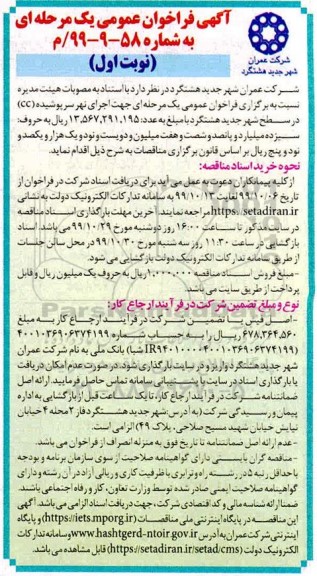 آگهی فراخوان عمومی یک مرحله ای
به شماره ۵۸-۹-۹۹/م
(نوبت اول)
شرکت عمران
شهر جدید هشتگرد
شرکت عمران شهر جدید هشتگرد در نظر دارد با استناد به مصوبات هیئت مدیره
نسبت به برگزاری فراخوان عمومی یک مرحله ای جهت اجرای نهر سرپوشیده (cc)
در سطح شهر جدید هشتگرد با مبلغ به عدد: ۱۳،۵۶۷،۲۹۱،۱۹۵ ریال به حروف:
سیزده میلیارد و پانصد و شصت و هفت میلیون و دویست و نود و یک هزار و یکصد و
نود و پنج ریال بر اساس قانون برگزاری مناقصات به شرح ذیل اقدام نماید.
نحوه خرید اسناد مناقصه:
از کلیه پیمانکاران دعوت به عمل می آید برای دریافت اسناد شرکت در فراخوان از
تاریخ ۹۹/۱۰/۰۶ لغایت ۹۹/۱۰/۱۳ به سامانه تدارکات الکترونیک دولت به نشانی
https://setadiran.ir مراجعه نمایند. آخرین مهلت بارگذاری اسناد مناقصه
در سایت مذکور تا ساعت ۱۶:۰۰ روز دوشنبه مورخ ۹۹/۱۰/۲۹ می باشد. اسناد
بازگشایی در ساعت ۱۱:۳۰ روز سه شنبه مورخ ۹۹/۱۰/۳۰ در محل سالن جلسات
از طریق سامانه تدارکات الکترونیک دولت بازگشایی می شود.
-مبلغ فروش اسناد مناقصه ۱،۰۰۰،۰۰۰ ریال به حروف یک میلیون ریال و قابل
پرداخت از طریق سایت می باشد.
نوع و مبلغ تضمین شرکت در فرآیند ارجاع کار:
-اصل فیش یا تضمین شرکت در فرآیند ارجاع کار به مبلغ
۶۷۸،۳۶۴،۵۶۰ ریال را به حساب شماره ۴۰۰۱۰۳۶۹۰۶۳۷۴۱۹۹
شبا) بانک ملی به نام شرکت عمران
شهر جدید هشتگرد واریز و در سایت بارگذاری شود. در صورت عدم امکان دریافت
یا بارگذاری اسناد در سایت با پشتیبانی سامانه تماس حاصل فرمایید. ارائه اصل
ضمانتنامه شرکت در فرآیند ارجاع کار، تا یک ساعت قبل از بازگشایی به اداره
پیمان و رسیدگی شرکت (به آدرس: شهر جدید هشتگرد فاز ۲ محله ۲ خیابان
نیایش خیابان شهید مسیح صلاحی، پلاک ۴۹) الزامی است.
-عدم ارائه اصل ضمانتنامه تا تاریخ فوق به منزله انصراف از فراخوان می باشد.
-مناقصه گران بایستی دارای گواهینامه صلاحیت از سوی سازمان برنامه و بودجه
با حداقل رتبه ۵ در رشته راه و ترابری با ظرفیت کاری و ریالی آزاد در آن رشته و دارای
گواهینامه صلاحیت ایمنی صادر شده توسط وزارت تعاون، کار و رفاه اجتماعی باشند.
ضمنا ارائه شناسه ملی و کد اقتصادی شرکت، جهت دریافت اسناد الزامی می باشد. آگهی
این مناقصه در پایگاه اینترنتی ملی مناقصات (https://iets.mporg.ir) و پایگاه
اینترنتی شرکت عمران به آدرس www.hashtgerd-ntoir.gov.ir و سامانه تدارکات
الکترونیک دولت (https://setadiran.ir/setad/cms) قابل مشاهده می باشد.